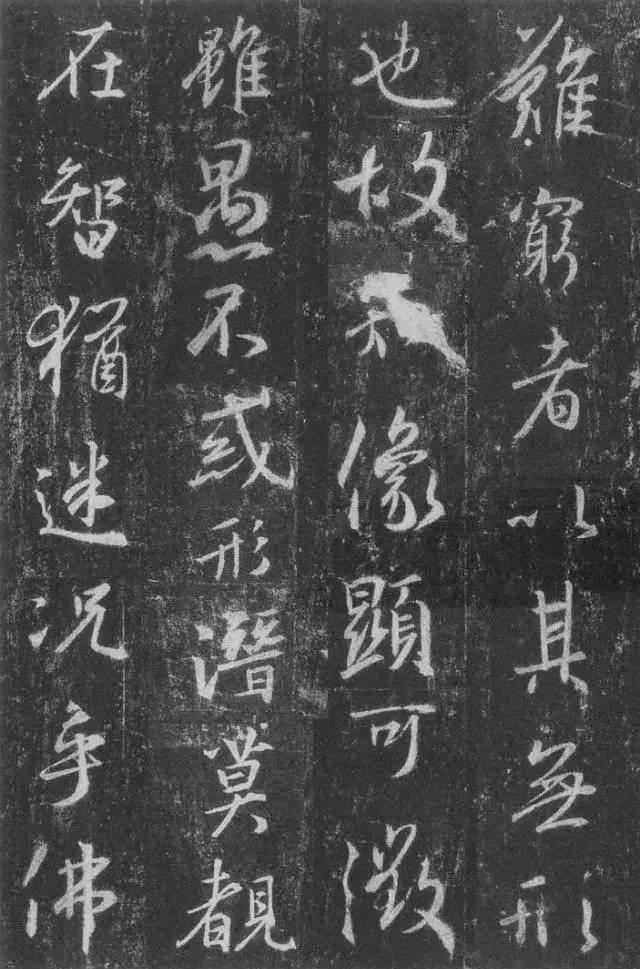 難窮者以其無形
也故像顯可徵
雖愚不惑形潛莫覩
在智猶迷況乎佛